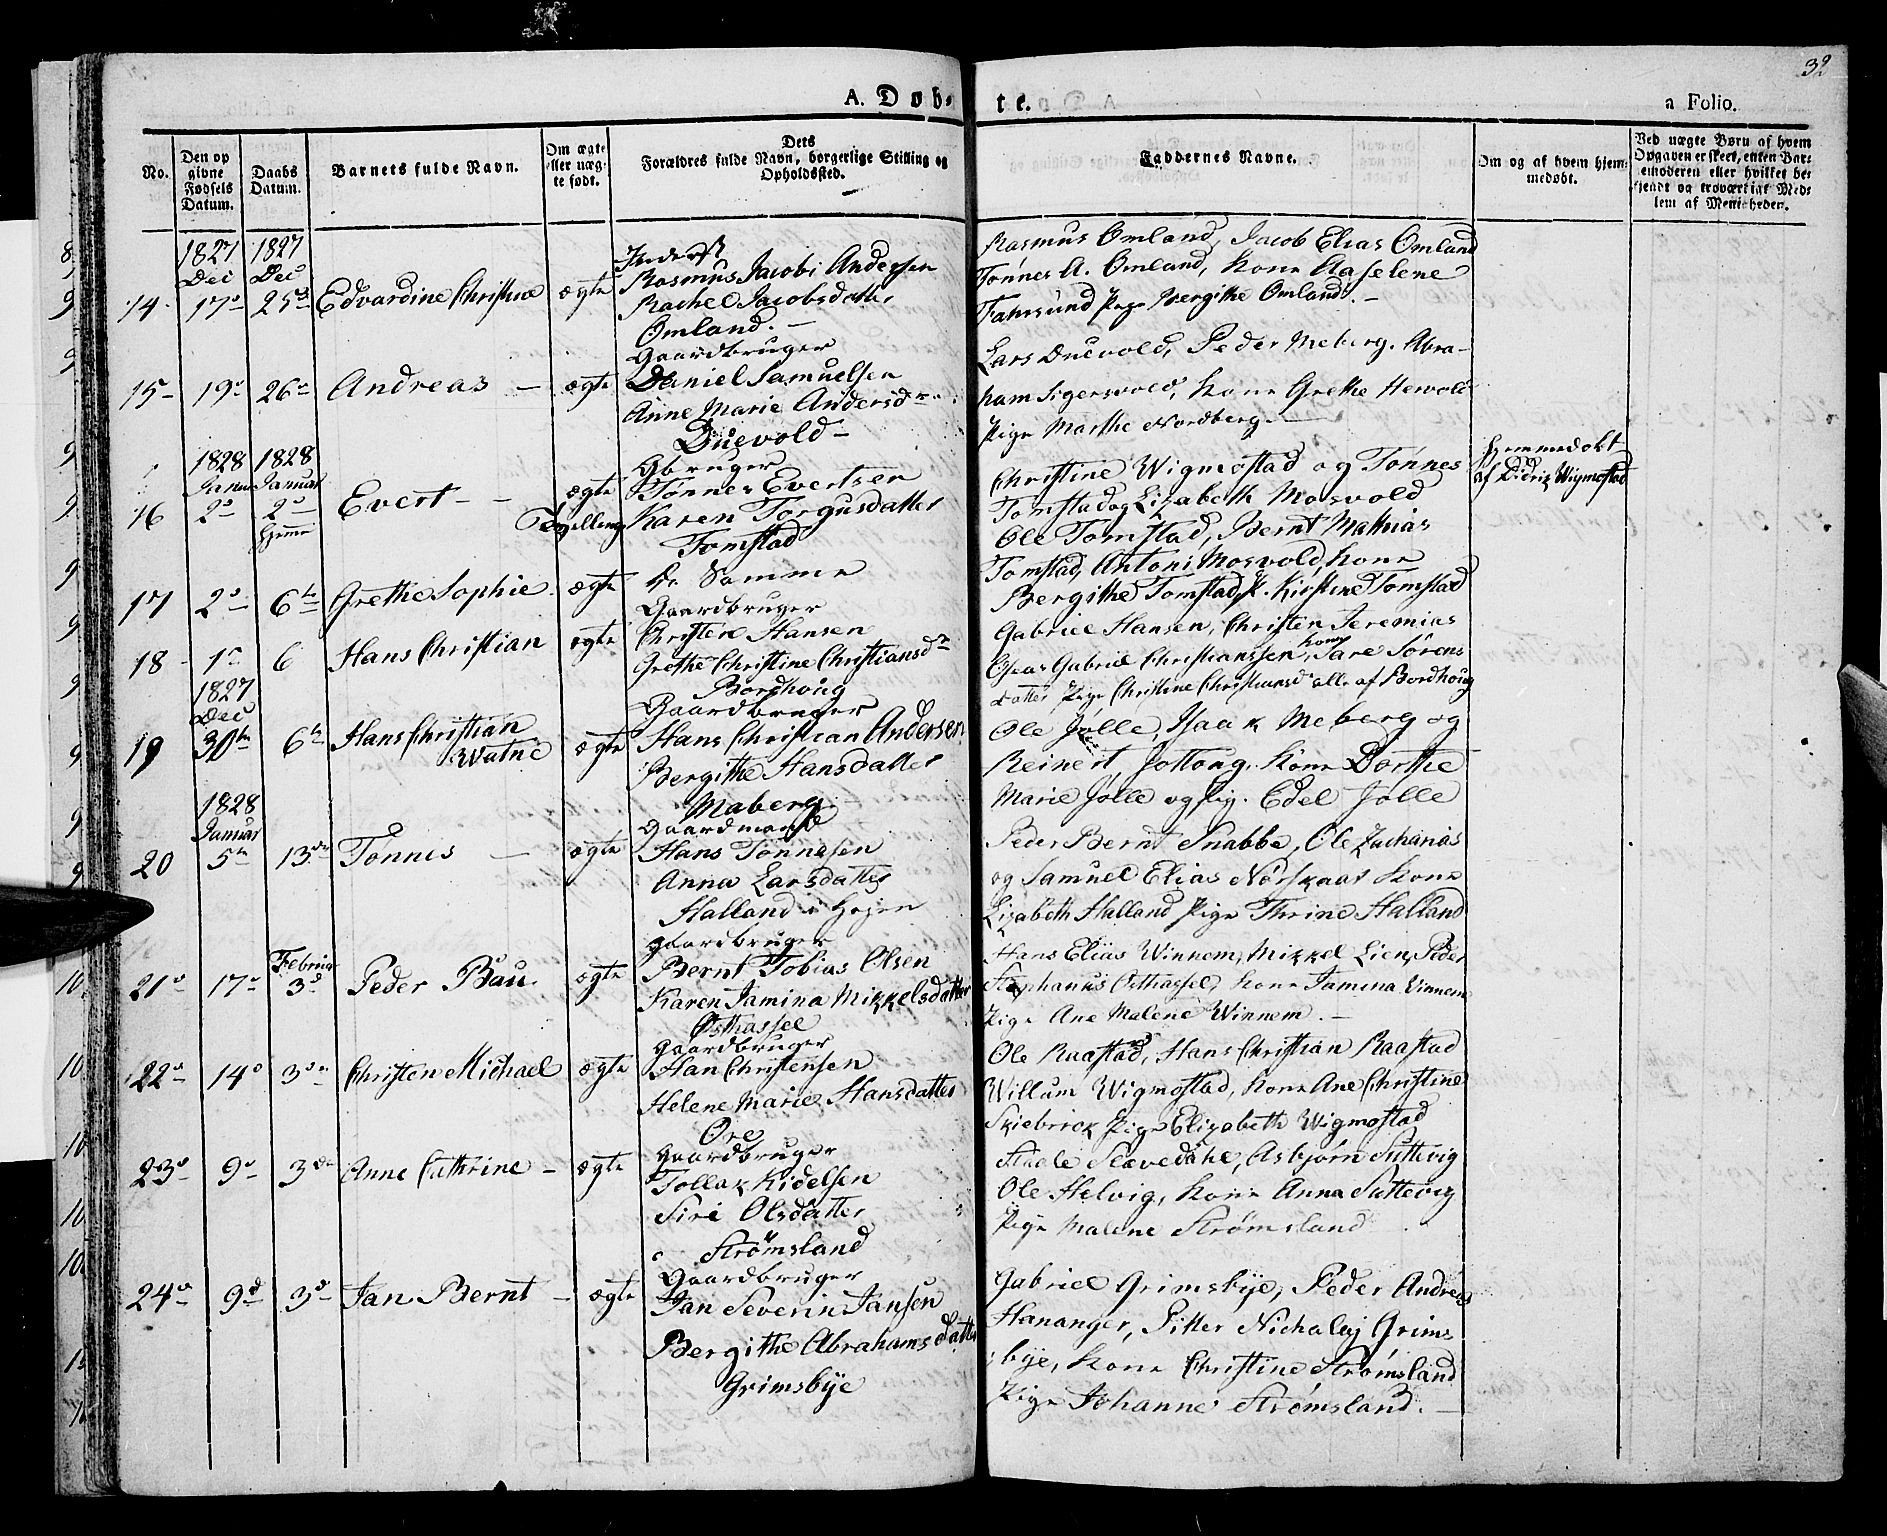 32
A. Døb-
te.
a Folio.
No.
Den op
givne
Fødsels
Datum.
Daabs
Datum.
Barnets fulde Navn.
Om ægte
eller uæg-
te født.
Dets
Forældres fulde Navn, borgerlige Stilling og
Opholdssted.
Faddernes Navne.
Om og af hvem hjem-
medøbt.
Ved uægte Børn af hvem
Opgaven er skeet, enten Bar-
nemoderen eller hvilket be-
kjendt og troværdigt Med-
lem af Menigheden.
1827 1827
Dec Dec
14. 17de 25de Edvardine Christine ægte
Rasmus Jacobi Andersen
Rachel Jacobsdatter
Omland. -
Rasmus Omland, Jacob Elias Omland
Tønnes A. Omland, Kone Aaselene
Fahrsund Pige Bergithe Omland. -
15 19de 26de Andreas - ægte
Gaardbruger
Daniel Samuelsen
Anne Marie Andersd.
Duevold -
Lars Duevold, Peder Meberg. Abra-
ham Sigersvold, Kone Grethe Hervold
Pige Marthe Nordberg.
1828 1828
Januar Januar
16 2de 2de Evert - - ægte
Hjemme
Tvelling
Gbruger
Tønnes Evertsen
Karen Torgusdatter
Tomstad
Christine Wigmostad og Tønnes
Tomstad og Lizabeth Mosvold
Ole Tomstad, Bernt Mathias
Hjemmedøbt
af Didrik Wigmostad
17 2de 6te Grethe Sophie. ægte
De Samme
Tomstad, Antoni Mosvold, Kone
Bergithe Tomstad, P. Kirstine Tomstad
18 1ste 6 Hans Christian ægte
Gaardbruger
Christen Hansen
Grethe Christine Christiansdr
Bordhoug
Gabriel Hansen, Christen Jeremias
Oseas Gabriel Christianssen, Kone Tare Sørens
datter Pige Christine Christiansd alle af Bordhoug
1827
Dec
19 30te 6te Hans Christian
Watne ægte
Gaardbruger
Hans Christian Andersen
Bergithe Hansdatter
Maberg
Ole Jølle, Isaak Meberg og
Reinert Jottong, Kone Dorthe
Marie Jølle og Pig. Edel Jølle
1828
Januar
20 5te 13de Tønnes - ægte
Gaardmand
Hans Tønnesen
Anna Larsdatter
Halland i Hegen
Peder Bernt Snabbe, Ole Zacharias
og Samuel Elias Nørskaar Kone
Lizabeth Halland Pige Thrine Halland
Februar
21de 17de 3de Peder Bau. ægte
Gaardbruger
Bernt Tobias Olsen
Karen Jamina Mikkelsdatter
Østhassel
Hans Elias Winnem, Mikkel Lien, Peder
Stephanus Østhassel, Kone Jamina Vinnem
Pige Ane Malene Winnem. -
22de 14de 3de Christen Michael ægte
Gaardbruger
Han Christensen
Helene Marie Hansdatter
Øre
Ole Raastad, Hans Christian Raastad
Willum Wigmostad, Kone Ane Christine
Skiebrok Pige Elizabeth Wigmostad
23de 9de 3de Anne Cathrine - ægte
Gaardbruger
Tollak Kidelsen
Siri Olsdatter
Strømsland
Staale Slevedahl, Asbjørn Suttevig
Ole Helvig, Kone Anna Suttevig
Pige Malene Strømsland
24de 9de 3de Jan Bernt - ægte
Gaardbruger
Jan Severin Jansen
Bergithe Abrahamsdatter
Grimsbye
Gabriel Grimsbye, Peder Andreas
Hananger, Pitter Nicholay Grims
bye, Kone Christine Strømsland
Pige Johanne Strømsland. -